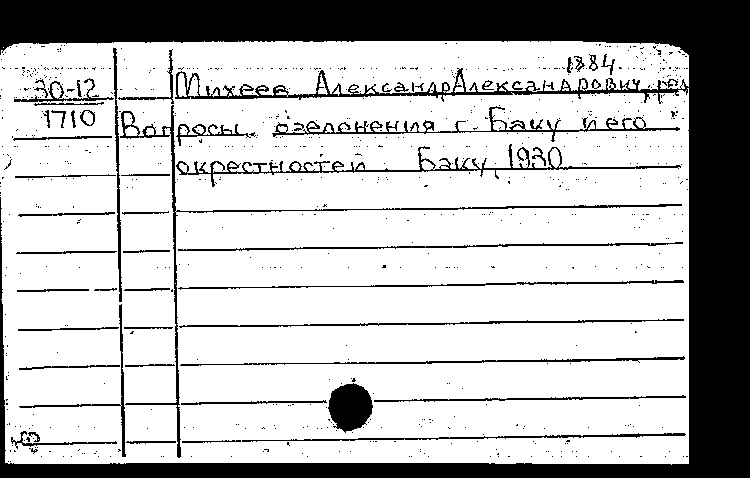 1884
30-12 Михеев Александр Александрович, ред
1710 Вопросы озеленения г. Баку и его
окрестностей. Баку, 1930